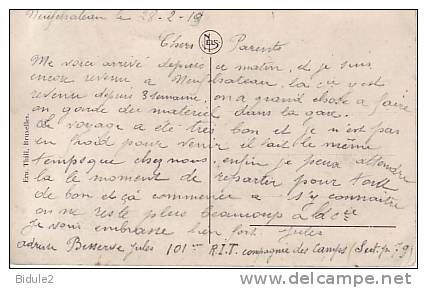 Neufchateau le 28-2-19
Chers Parents
Me voici arrivé depuis ce matin, et je suis
encore revenu a Neufchateau, la cie y est
revenu depuis 3 semaine, on a grand chose a faire
on garde du materiel dans la gare.
Le voyage a été tres bon et je n'est pas
eu froid pour venir il fait le même
temps que chez nous, enfin je peux attendre
la le moment de repartir pour tout
de bon et ça commence a s'y connaitre
on ne reste plus beaucoup a la cie
Je vous embrasse bien fort. Jules
adresse Besserve Jules 101me R.I.T. compagnie des Camps (Sect. p. 79)
Ern. Thill, Bruxelles.
NELS
Bidule2
delcampe.net